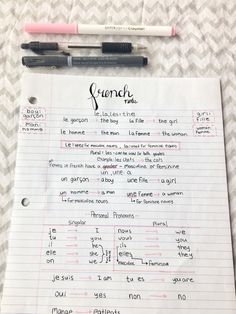 french
notes
le, la, les = the
boy: garçon
girl: fille
le garçon → the boy la fille → the girl
man: homme
woman: femme
le homme → the man la femme → the woman
Le is used for masculine nouns, la is used for feminine nouns
Plural: les - can be used for both genders
Example: les chats → the cats
Nouns in French have a gender - masculine or feminine
un, une = a
un garçon → a boy une fille → a girl
un homme → a man une femme → a woman
for masculine nouns for feminine nouns
Personal Pronouns-
singular plural
je → I nous → we
tu → you vous → you
il → he ils → they
elle → she elles → they
on → we masculine feminine
je suis → I am tu es → you are
oui → yes non → no